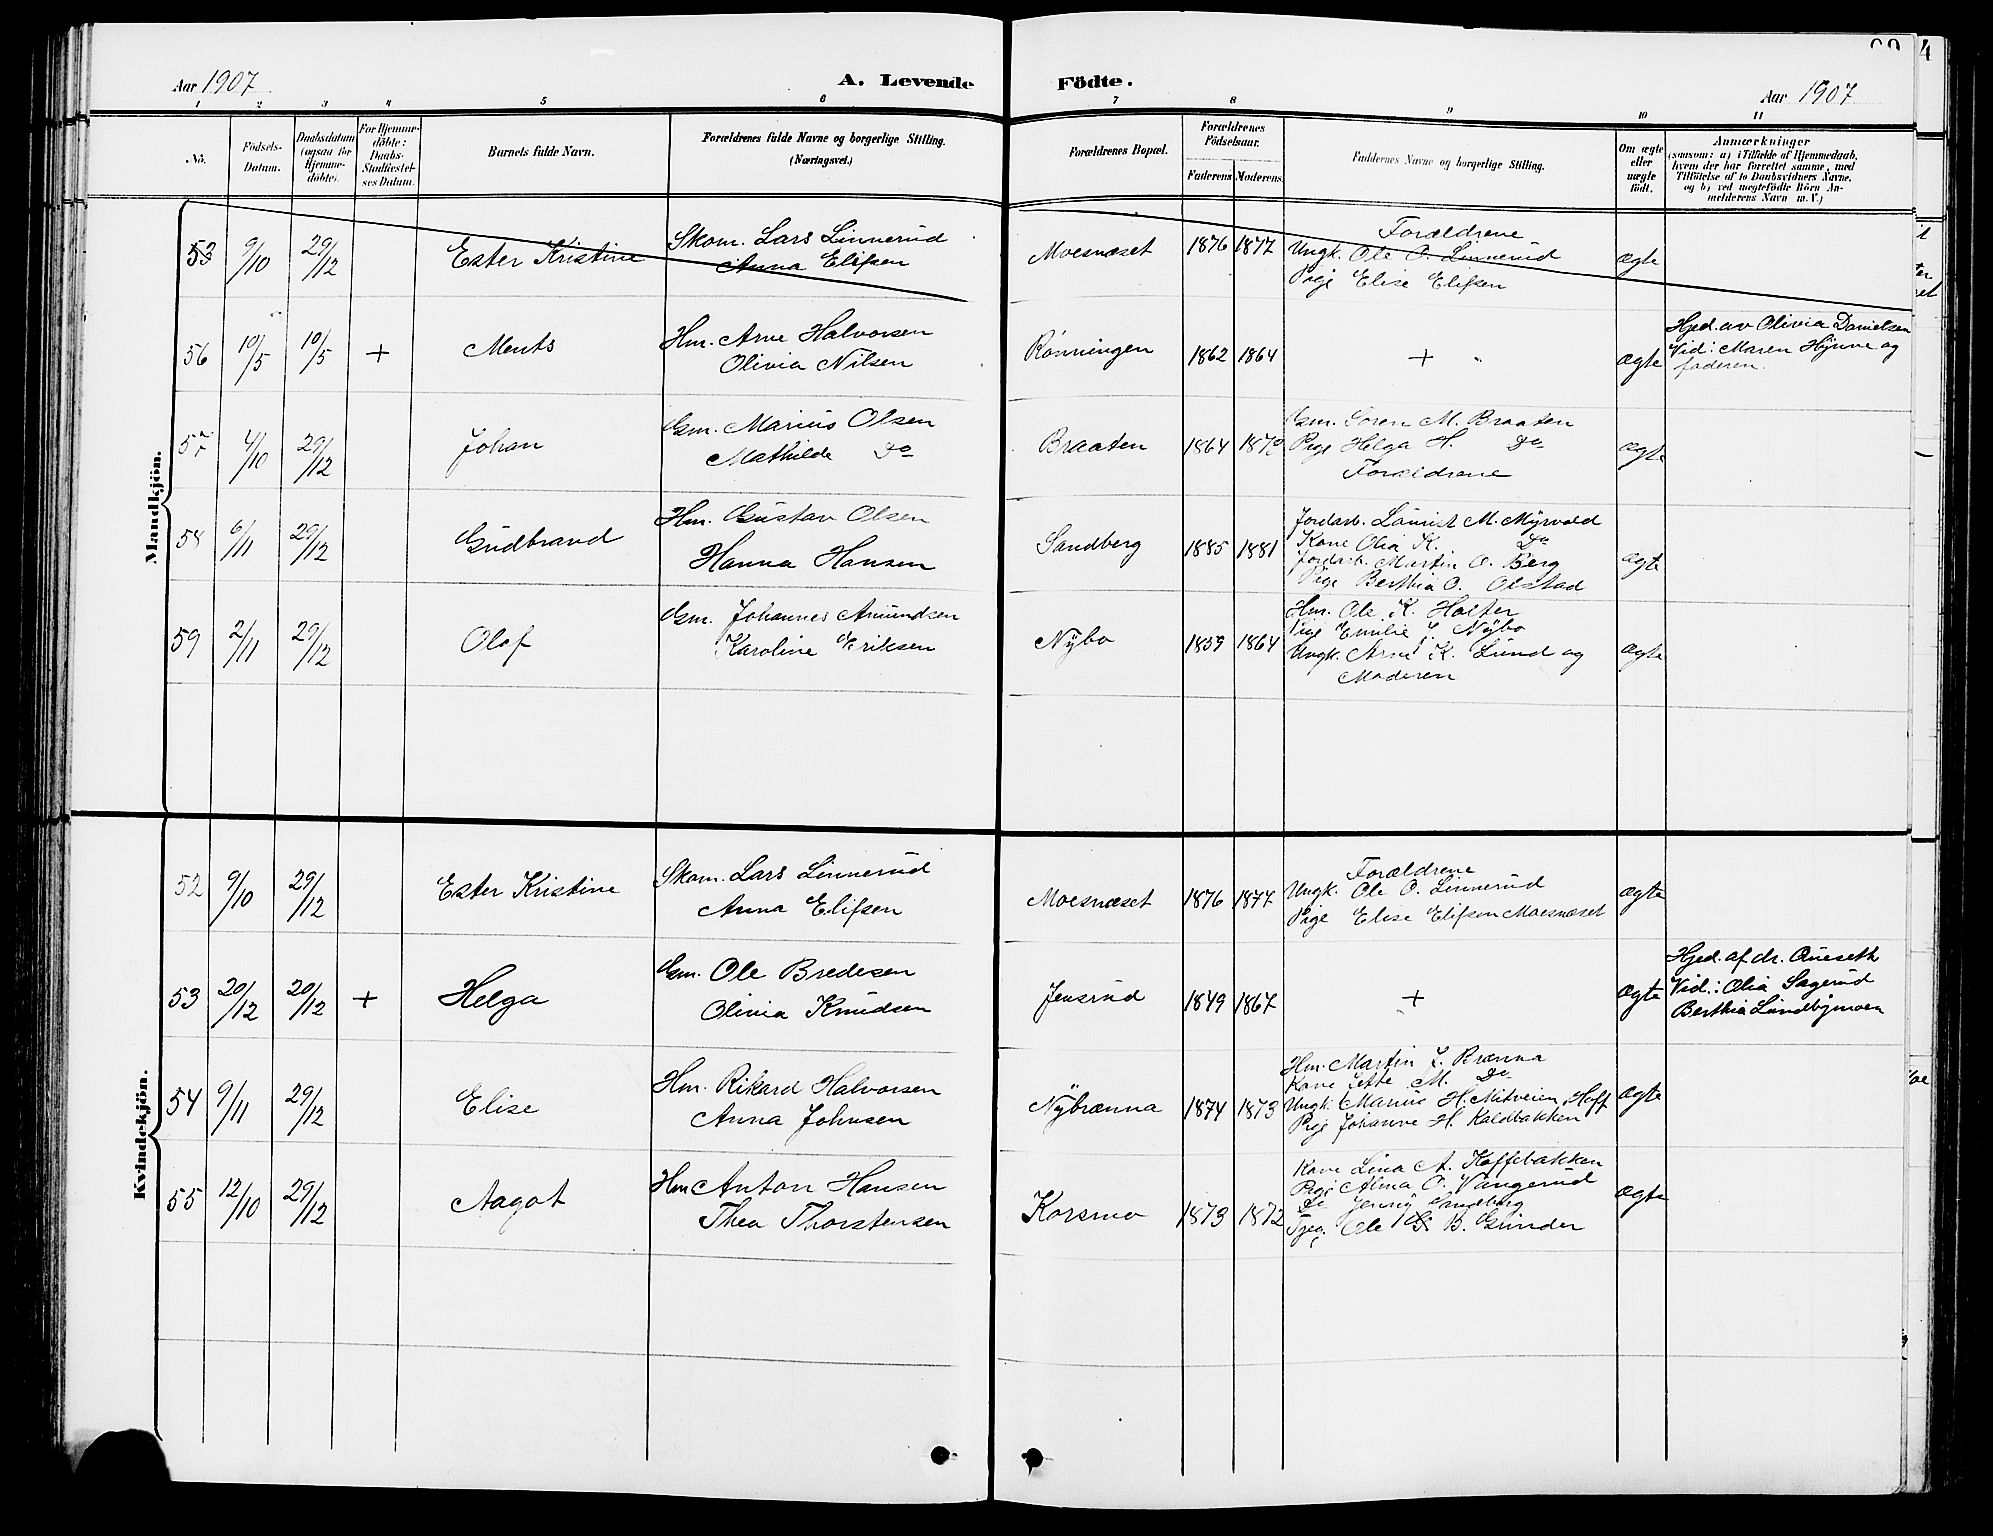 Aar 1907
A. Levende Födte.
Aar 1907
1 2 3 4 5 6 7 8 9 10 11
No.
Födsels-Datum.
Daabsdatum (ogsaa for Hjemme-döbte).
For Hjemme-döbte: Daabs-Stadfæstel-ses Datum.
Barnets fulde Navn.
Forældrenes fulde Navne og borgerlige Stilling. (Næringsvei.)
Forældrenes Bopæl.
Forældrenes Födselsaar.
Faderens Moderens
Faddernes Navne og borgerlige Stilling.
Om ægte eller uægte födt.
Anmærkninger
(saasom: a) i Tilfælde af Hjemmedaab,
hvem der har forrettet samme, med
Tilföielse af to Daabsvidners Navne,
og b) ved uægtefödte Börn An-
melderens Navn m. V.)
Mandkjön.
53 9/10 29/12 Ester Kristine Skom. Lars Linnerud Moesnæset 1876 1877 Forældrene
Anna Elifsen Ungk. Ole O. Linnerud ægte
Pige Elise Elifsen
56 10/5 10/5 + Ments Hm. Arne Halvorsen Rønningen 1862 1864 + ægte Hjed. av Olivia Danielsen
Olivia Nilsen Vid: Maren Hijnne og
faderen.
57 4/10 29/12 Johan Gm. Marius Olsen Braaten 1864 Gm. Soren M. Braaten
Mathilde Do Pige Helga H. Do ægte
Forældrene
58 6/11 29/12 Gudbrand Hm. Gustav Olsen Sandberg 1885 1881 Jordarb. M. Myrvold
Hanna Hansen Kone Olia K. Do
Jordarb. Martin O. Berg ægte
Pige Berthia O. Olstad
59 2/11 29/12 Olaf Gm. Johannes Amundsen Nybo 1859 1864 Hm. Ole K. Holter
Karoline Eriksen Pige Emilie J. Nybo
Ungk. Arne K. Lund og ægte
Moderen
Kvindekjön.
52 9/10 29/12 Ester Kristine Skom. Lars Linnerud Moesnæset 1876 1877 Forældrene
Anna Elifsen Ungk. Ole O. Linnerud ægte
Pige Elise Elifsen Moesnæset
53 20/12 20/12 + Helga Gm. Ole Bredesen Jensrud 1849 1867 + ægte Hjed. af dr. Qveseth
Olivia Knudsen Vid.: Olia Sagerud
Berthia Lundbymoen
54 9/11 29/12 Elise Hm. Rikard Halvorsen Nybrænna 1874 1873 Hm. Martin J. Brænna
Anna Johnsen Kone Jette M. Do
Ungk. Marius H. Mitveien, Hoff ægte
Pige Johanne H. Kaldbakken
55 12/10 29/12 Aagot Hm Anton Hansen Korsmo 1873 1872 Kone Lina A. Kaffebakken
Thea Thorstensen Pige Alma O. Vangerud ægte
Do Jenny Sandberg
Ole B. Grinder